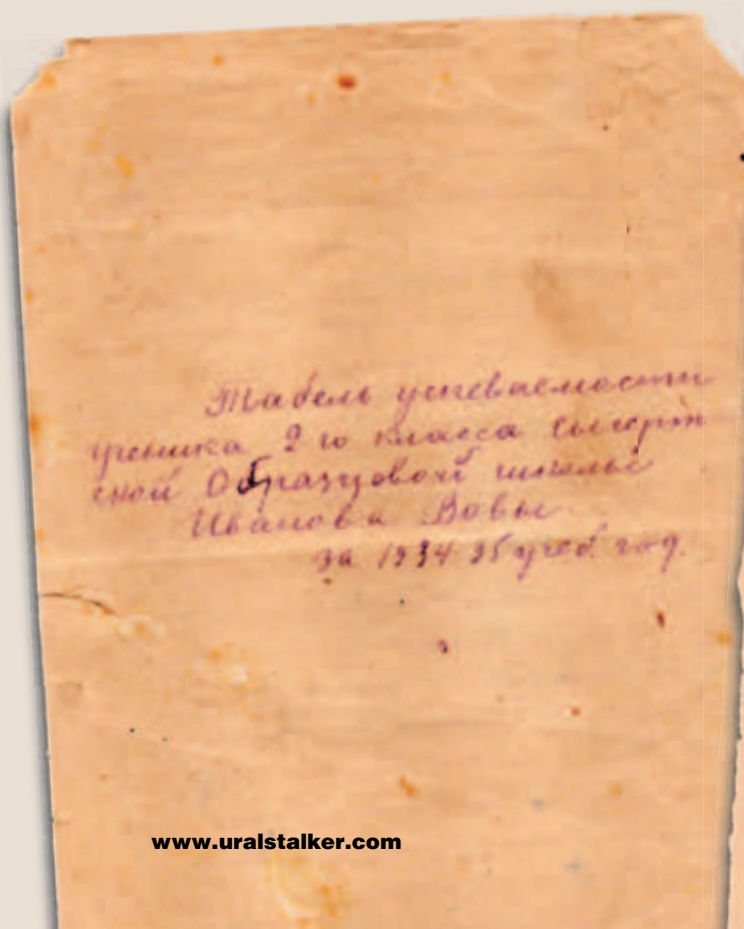 Табель успеваемости
ученика 2 го класса Сысерт
ской Образцовой школы
Иванова Вовы
за 1934 35 учеб. год.
www.uralstalker.com